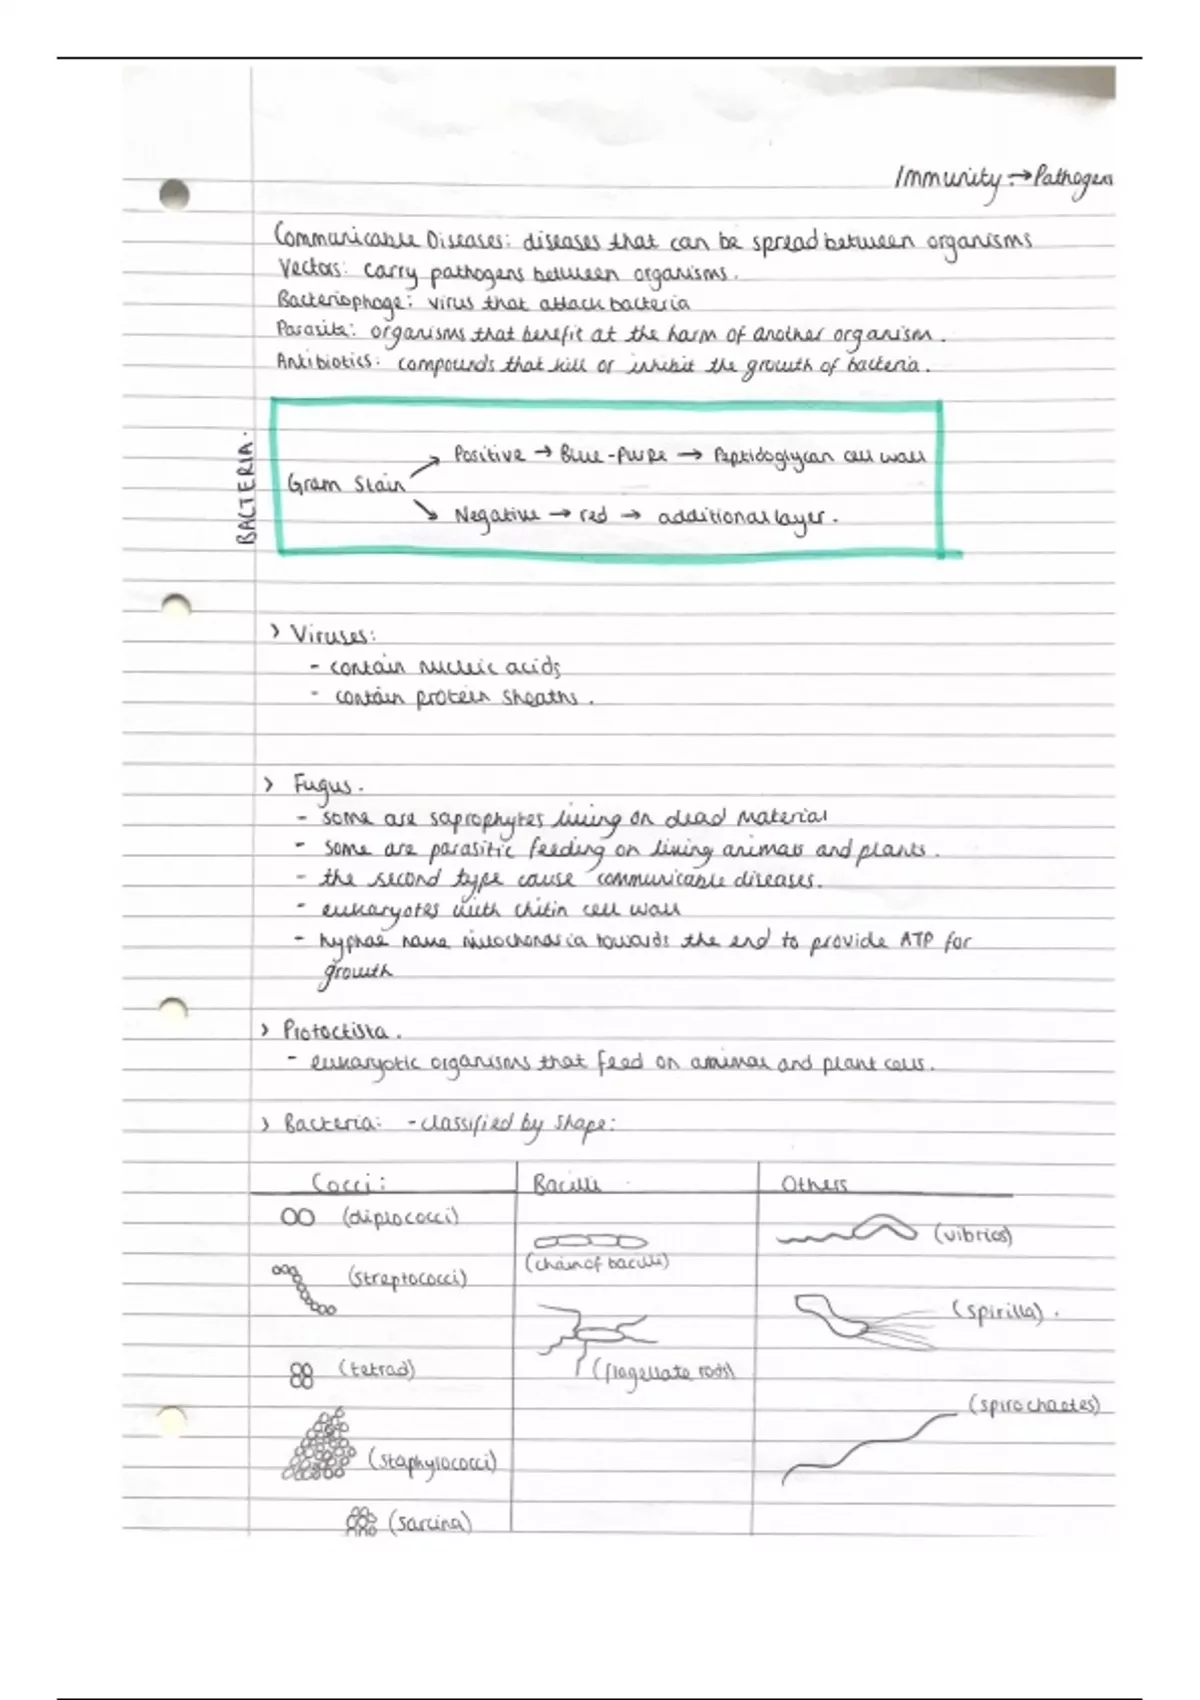 Immunity → Pathogens
Communicable Diseases: diseases that can be spread between organisms
Vectors: carry pathogens between organisms.
Bacteriophage: virus that attack bacteria
Parasite: organisms that benefit at the harm of another organism.
Antibiotics: compounds that kill or inhibit the growth of bacteria.
BACTERIA.
Positive → Blue-Purple → Peptidoglycan cell wall
Gram Stain
Negative → red → additional layer.
> Viruses:
- contain nucleic acids
- contain protein sheaths.
> Fugus.
- some are saprophytes living on dead material
- some are parasitic feeding on living animals and plants.
- the second type cause communicable diseases.
- eukaryotes with chitin cell wall
- hyphae have mitochondria towards the end to provide ATP for
growth
> Protoctista.
- eukaryotic organisms that feed on animal and plant cells.
> Bacteria: - classified by shape:
Cocci: Bacilli Others
(diplococci)
(vibrios)
(chain of bacilli)
(streptococci)
(spirilla).
(tetrad)
(flagellate rods)
(spirochaetes)
(staphylococci)
(sarcina)